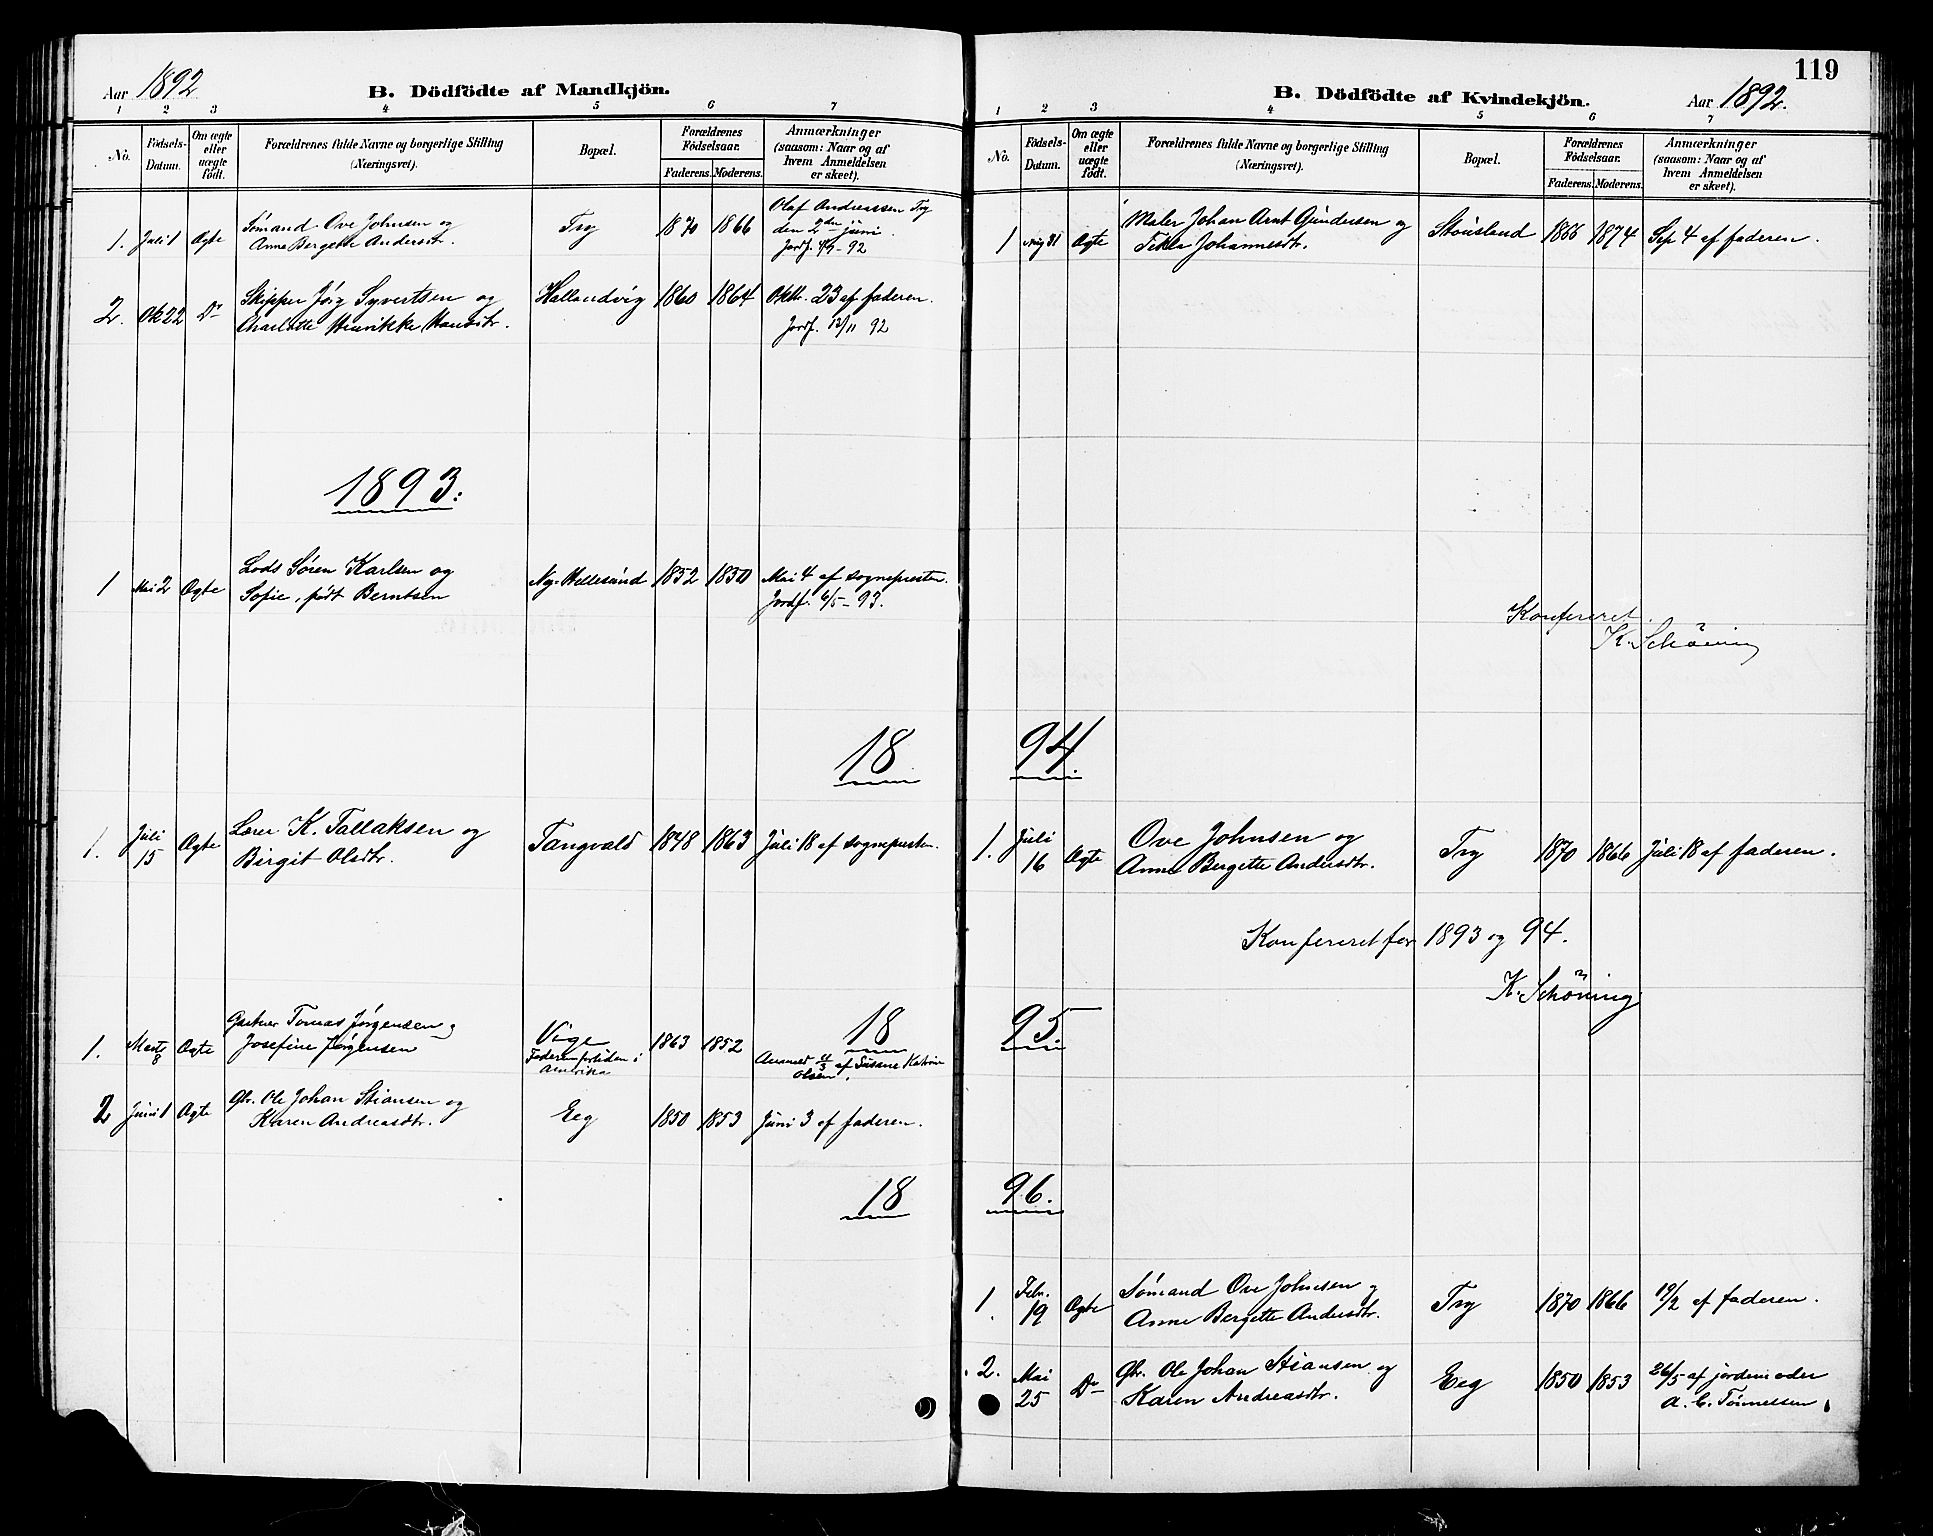 Aar 1892
B. Dödfödte af Mandkjön.
1 2 3 4 5 6 7
No.
Födsels-
Datum.
Om ægte
eller
uægte
födt.
Forældrenes fulde Navne og borgerlige Stilling
(Næringsvei).
Bopæl.
Forældrenes
Födselsaar.
Faderens. Moderens.
Anmærkninger
(saasom: Naar og af
hvem Anmeldelsen
er skeet).
1. Juli 1 Ægte
Sømand Ove Johnsen og
Anne Bergette Andersdtr.
Try 1870 1866
Olaf Andreassen Try
den 2den juni
Jordf. 92
2. Ok 22 Do
Skipper Jörg Syvertsen og
Charlotte Henrikke Hansdtr.
Hallandvig 1860 1864
Oktr. 23 af faderen.
Jordf. 12/11 92
1893.
1 Mai 2 Ægte
Lods Søren Karlsen og
Sofie, født Berntsen
Ny-Hellesund 1852 1850
Mai 4 af sognepresten.
Jordf. 6/5-93.
1894.
1. Juli
15 Ægte
Lærer K. Tallaksen og
Birgit Olsdtr.
Tangvald 1848 1863 Juli 18 af sognepresten.
1895.
1. Marts
8 Ægte
Gartner Tomas Jørgensen og
Josefine Jørgensen
Vige
Faderen fortiden i
Amerika
1863 1852
Anmeldt af Susane Katrine
Olsen.
2 Juni 1 Ægte
Gbr. Ole Johan Stiansen og
Karen Andreasdtr.
Eeg 1850 1853 Juni 3 af faderen.
1896.
119
B. Dödfödte af Kvindekjön.
Aar 1892.
1 2 3 4 5 6 7
No.
Födsels-
Datum.
Om ægte
eller
uægte
födt.
Forældrenes fulde Navne og borgerlige Stilling
(Næringsvei).
Bopæl.
Forældrenes
Födselsaar.
Faderens. Moderens.
Anmærkninger
(saasom: Naar og af
hvem Anmeldelsen
er skeet).
1 Aug 31 Ægte
Maler Johan Arnt Gundersen og
Tekla Johannesdtr.
Stousland 1866 1874 Sep 4 af faderen.
Konfereret.
K. Schöning
1. Juli
16 Ægte
Ove Johnsen og
Anne Bergette Andersdtr.
Try 1870 1866 Juli 18 af faderen.
Konfereret for 1893 og 94.
K. Schöning
1. Febr.
19 Ægte
Sømand Ove Johnsen og
Anne Bergette Andersdtr.
Try 1870 1866 19/2 af faderen.
2. Mai
25 Do
Gbr. Ole Johan Stiansen og
Karen Andreasdtr.
Eeg 1850 1853
26/5 af jordemoder
A. C. Tønnessen